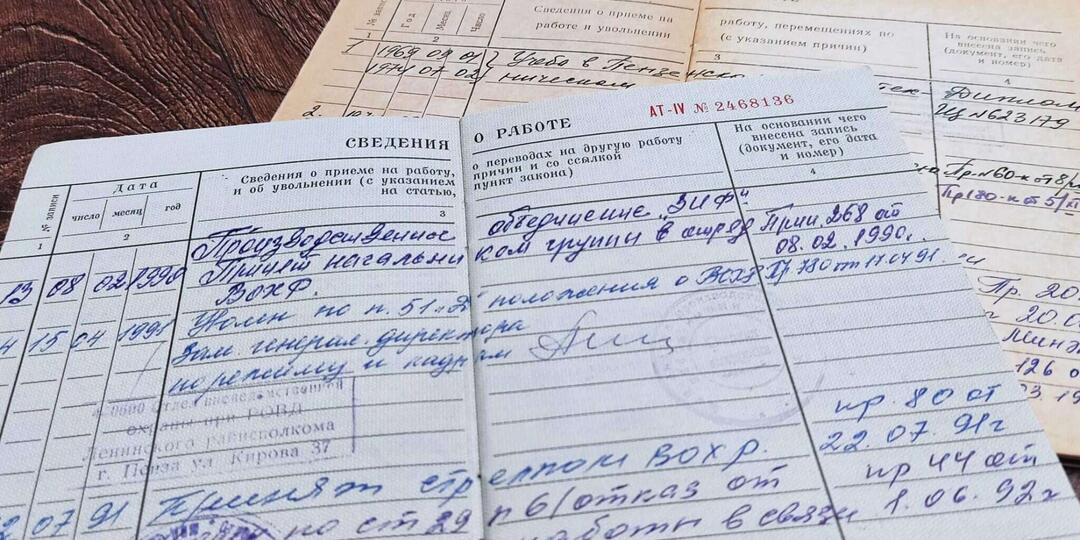 № записи
Дата
Год
Месяц
Число
Сведения о приеме на
работе и увольнении
работу, перемещениях по
(с указанием причин)
На основании чего
внесена запись
(документ, его дата
и номер)
1
2
3
3
4
1 1969 09 01 Учеба в Пензенско
1974 07 02 ническом
Диплом
№623179
Пр. №60-к от 8/
Пр180-к от 5/
2.
Пр. 20
20.0
126 о
АТ-IV № 2468136
СВЕДЕНИЯ О РАБОТЕ
№ записи
Дата
число месяц год
Сведения о приеме на работу,
и об увольнении (с указанием
на статью,
о переводах на другую работу
причин и со ссылкой
пункт закона)
На основании чего
внесена запись
(документ, его дата
и номер)
1
2
3
4
Производственное объединение „ЗИФ"
13 08 02 1990 Принят начальни ком группы в отряд Прик. 268 от
ВОХР. 08.02.1990г.
15 04 1991 Уволен по п. 51 положения о ВОХР Пр 780 от 17.04.91.
Зам. генерал. директора
по режиму и кадрам
Отдел вневедственной
охраны при РОВД
Ленинского райисполкома
г. Пенза ул Кирова 37
07 91 Принят стрелком ВОХР. пр. 80 от
22.07.91г
по ст 29 п 6/отказ от пр 44 от
работы в связи 1.06.92г